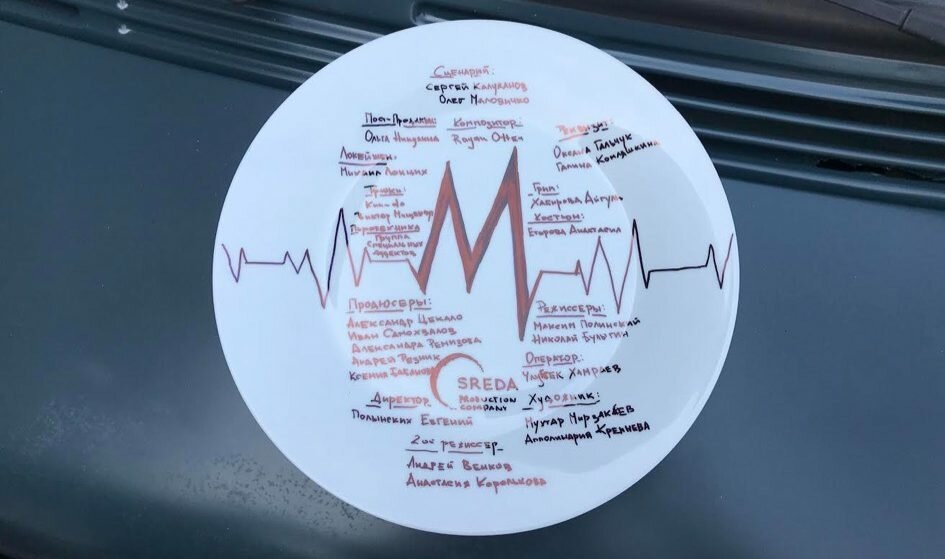 Сценарий:
Сергей Калужанов
Олег Маловичко
Пост-Продакшн:
Ольга Никулина
Композитор:
Ryan Otter
Реквизит:
Оксана Гальчук
Галина Конляшкина
Локейшен:
Михаил
Трюки:
Виктор Мищенко
Пиротехника
Группа
Специальных
эффектов
Грип:
Хабирова Айгуль
Костюм:
Егорова Анастасия
M
Продюсеры:
Александр Цекало
Иван Самохвалов
Александра Ремизова
Андрей Резник
Ксения
SREDA
PRODUCTION
COMPANY
Режиссеры:
Максим Полинский
Николай Булыгин
Оператор:
Улугбек Хамраев
Директор
Полынских Евгений
Художник:
Мухтар Мирзакеев
Апполинария Крепнева
2ой режиссер
Андрей Венков
Анастасия Королькова